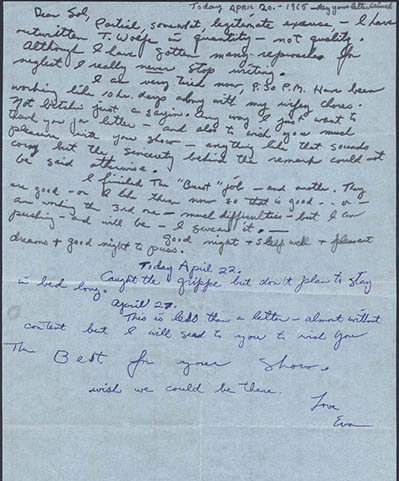 Today APRIL 20 - 1965 - day your letter arrived
Dear Sol,
Partial, somewhat legitimate expense - I have
outwritten T. Wolfe in quantity - not quality.
Although I have gotten many reproaches for
neglect I really never stop writing.
I am very tired now, 9:30 P.M. Have been
working like 10 hr. days along with my wifey chores.
Not bitchin just a sayin. Any way I just want to
thank you for letter - and also to wish you much
pleasure with your show - anything like that sounds
corny but the sincerity behind the remark could not
be said otherwise.
I finished The "Burst" job - and another. They
are good - or I like them now so that is good -- or -
am working the 3rd one - much difficulties - but I am
pushing - and will be - I swear it. -
good night + sleep well + pleasant
dreams + good night to puss.
Today April 22.
Caught the grippe but don't plan to stay
in bed long.
April 27.
This is less than a letter - almost without
content but I will send to you to wish you
The Best for your show.
wish we could be there.
Love
Eva